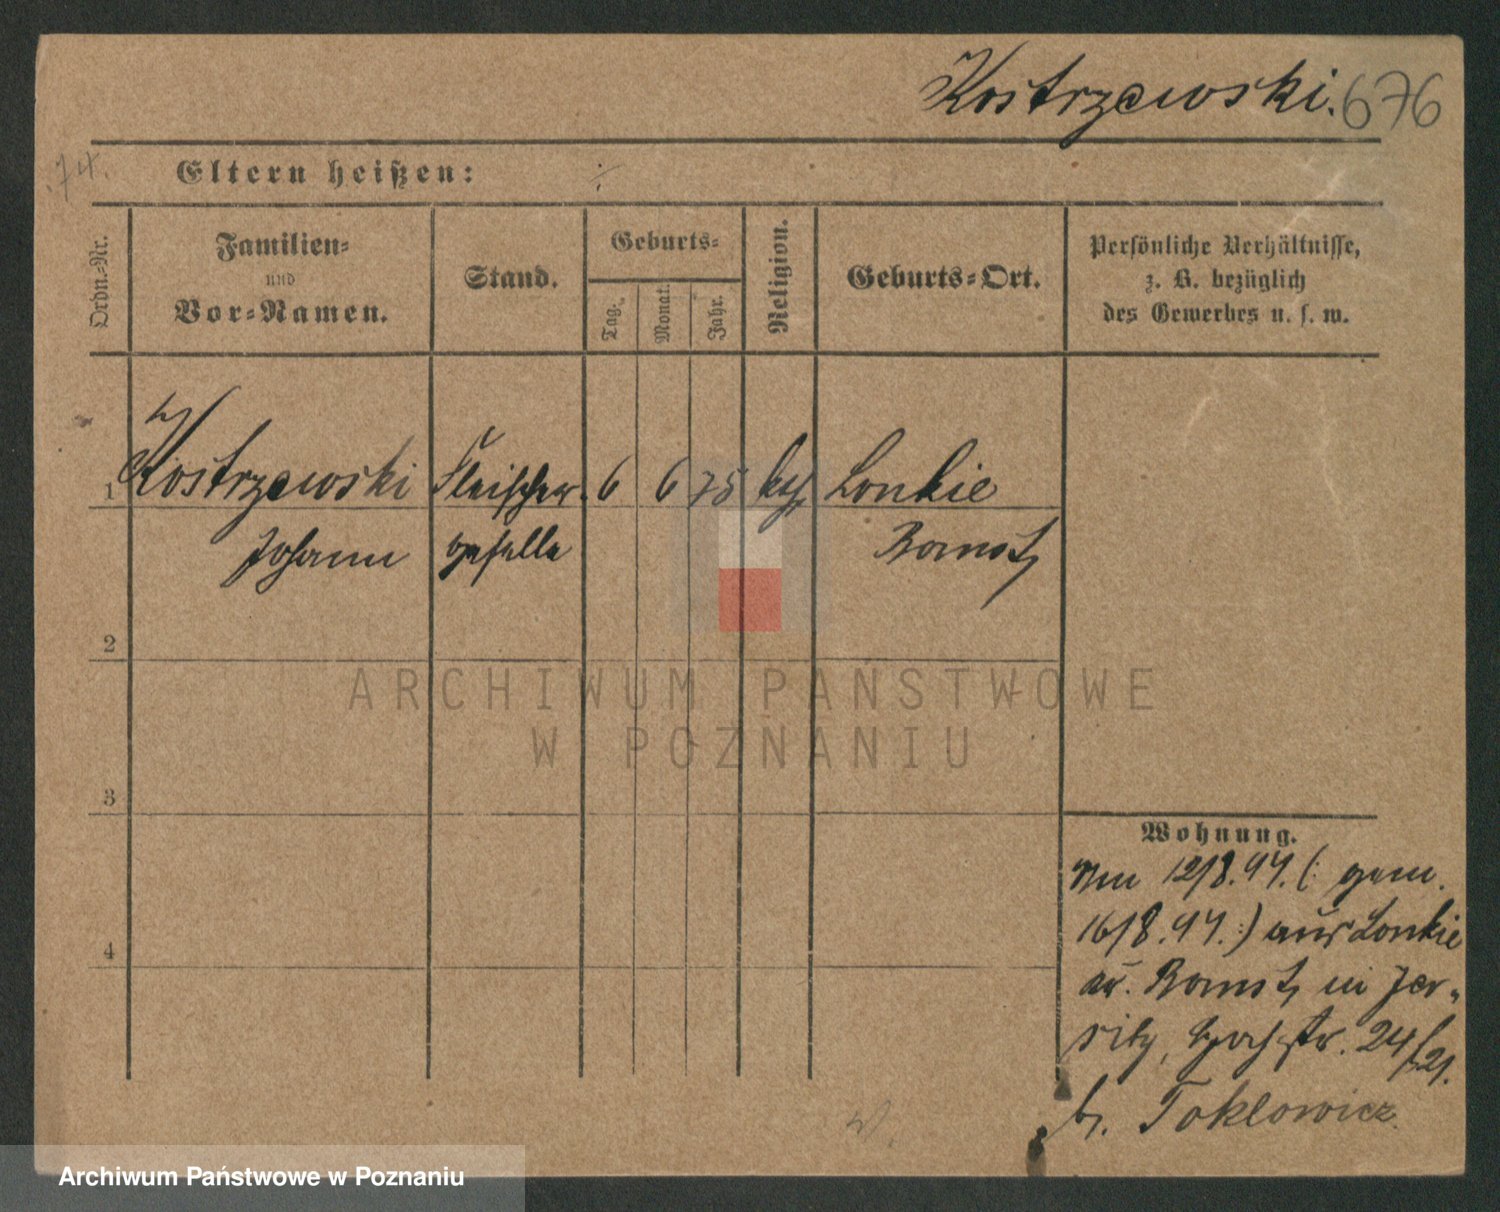 Kostrzewski. 676
74.
Eltern heißen:
Ordn.-Nr.
Familien-
und
Vor-Namen.
Stand.
Geburts-
Tag.
Monat.
Jahr.
Religion.
Geburts-Ort.
Persönliche Verhältnisse,
z. B. bezüglich
des Gewerbes u. s. w.
1 Kostrzewski Fleischer- 6 6 75 kth. Lonkie
Johann geselle Bomst
2
3
4
Wohnung.
Am 12/8.97. (: gem.
16/8.97. :) aus Lonkie
Kr. Bomst in Jer-
sitz, str. 24/21.
b. Toklowicz.
ARCHIWUM PAŃSTWOWE
W POZNANIU
Archiwum Państwowe w Poznaniu